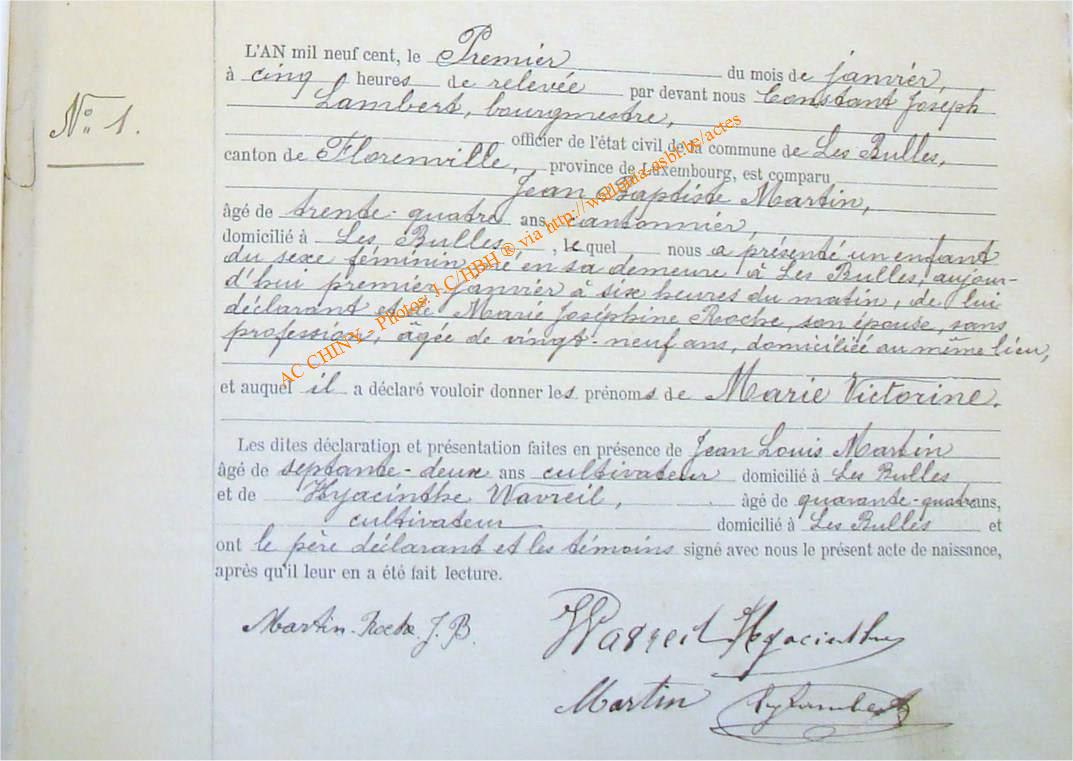 N° 1.
L'AN mil neuf cent, le Premier du mois de janvier,
à cinq heures de relevée par devant nous Constant Joseph
Lambert, bourgmestre,
officier de l'état civil de la commune de Les Bulles,
canton de Florenville, province de Luxembourg, est comparu
Jean Baptiste Martin,
âgé de trente-quatre ans, cantonnier,
domicilié à Les Bulles, lequel nous a présenté un enfant
du sexe féminin né en sa demeure à Les Bulles, aujour-
d'hui premier janvier à six heures du matin, de lui
déclarant et de Marie Joséphine Roche, son épouse, sans
profession, âgée de vingt-neuf ans, domiciliée au même lieu,
et auquel il a déclaré vouloir donner les prénoms de Marie Victorine.
Les dites déclaration et présentation faites en présence de Jean Louis Martin
âgé de septante-deux ans cultivateur domicilié à Les Bulles
et de Hyacinthe Wavreil, âgé de quarante-quatre ans,
cultivateur domicilié à Les Bulles et
ont le père déclarant et les témoins signé avec nous le présent acte de naissance,
après qu'il leur en a été fait lecture.
Martin-Roche J. B. Wavreil Hyacinthe
Martin Lambert
AC CHINY - Photos J-C/HBH ® via http://wallonia-asbl.be/actes